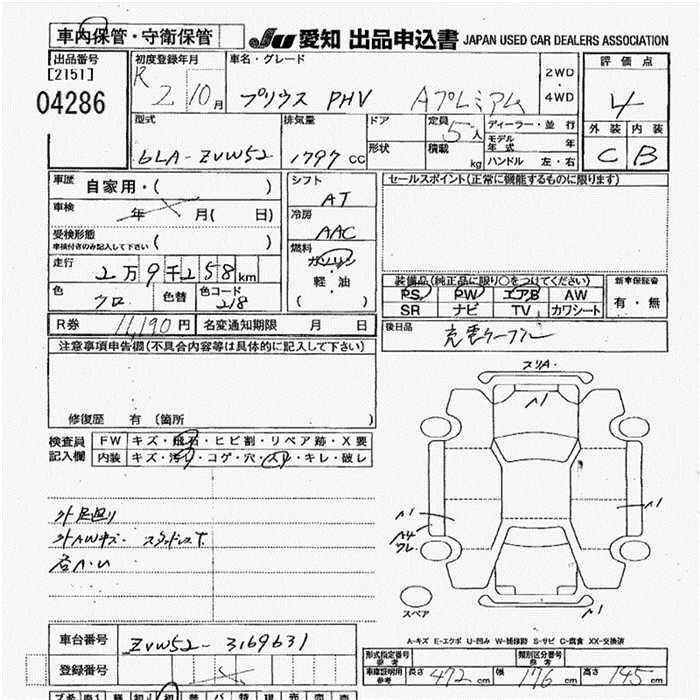 車内保管・守衛保管
JU 愛知 出品申込書 JAPAN USED CAR DEALERS ASSOCIATION
出品番号
[2151]
04286
初度登録年月
R 2 10月
車名・グレード
プリウス PHV Aプレミアム
2WD
・
4WD
評価点
4
外装 内装
C B
型式
6LA-ZVW52
排気量
1797 CC
ドア
形状
定員
5人
積載
kg
ディーラー・並行
モデル年式 年
ハンドル 左・右
車歴
自家用・( )
車検
年 月( 日)
受検形態
車検付きのみ記入して下さい ( )
走行
2万9千258km
色
クロ
色替
色コード
218
シフト
AT
冷房
AAC
燃料
ガソリン
軽・油
( )
セールスポイント(正常に機能するものに限ります)
装備品(純正品に限り○をつけてください)
PS PW エアB AW
SR ナビ TV カワシート
新車保証書
有・無
R券 11,190円 名変通知期限 月 日
後日品
充電ケーブル
注意事項申告欄(不具合内容等は具体的に記入して下さい)
修復歴 有 (箇所 )
検査員
記入欄
FW キズ・飛石・ヒビ割・リペア跡・X要
内装 キズ・汚レ・コゲ・穴・スレ・キレ・破レ
外 足廻り
外AWキズ スタッドレスT.
スリA.
A1
A1
A1
A4
ワレ
A1
スペア
A-キズ E-エクボ U-凹み W-補修跡 S-サビ C-腐食 XX-交換済
車台番号
ZVW52-3169631
登録番号
形式指定番号
参考
類別区分番号
参考
車庫証明用
参考
長さ 472cm 幅 176cm 高さ 145cm